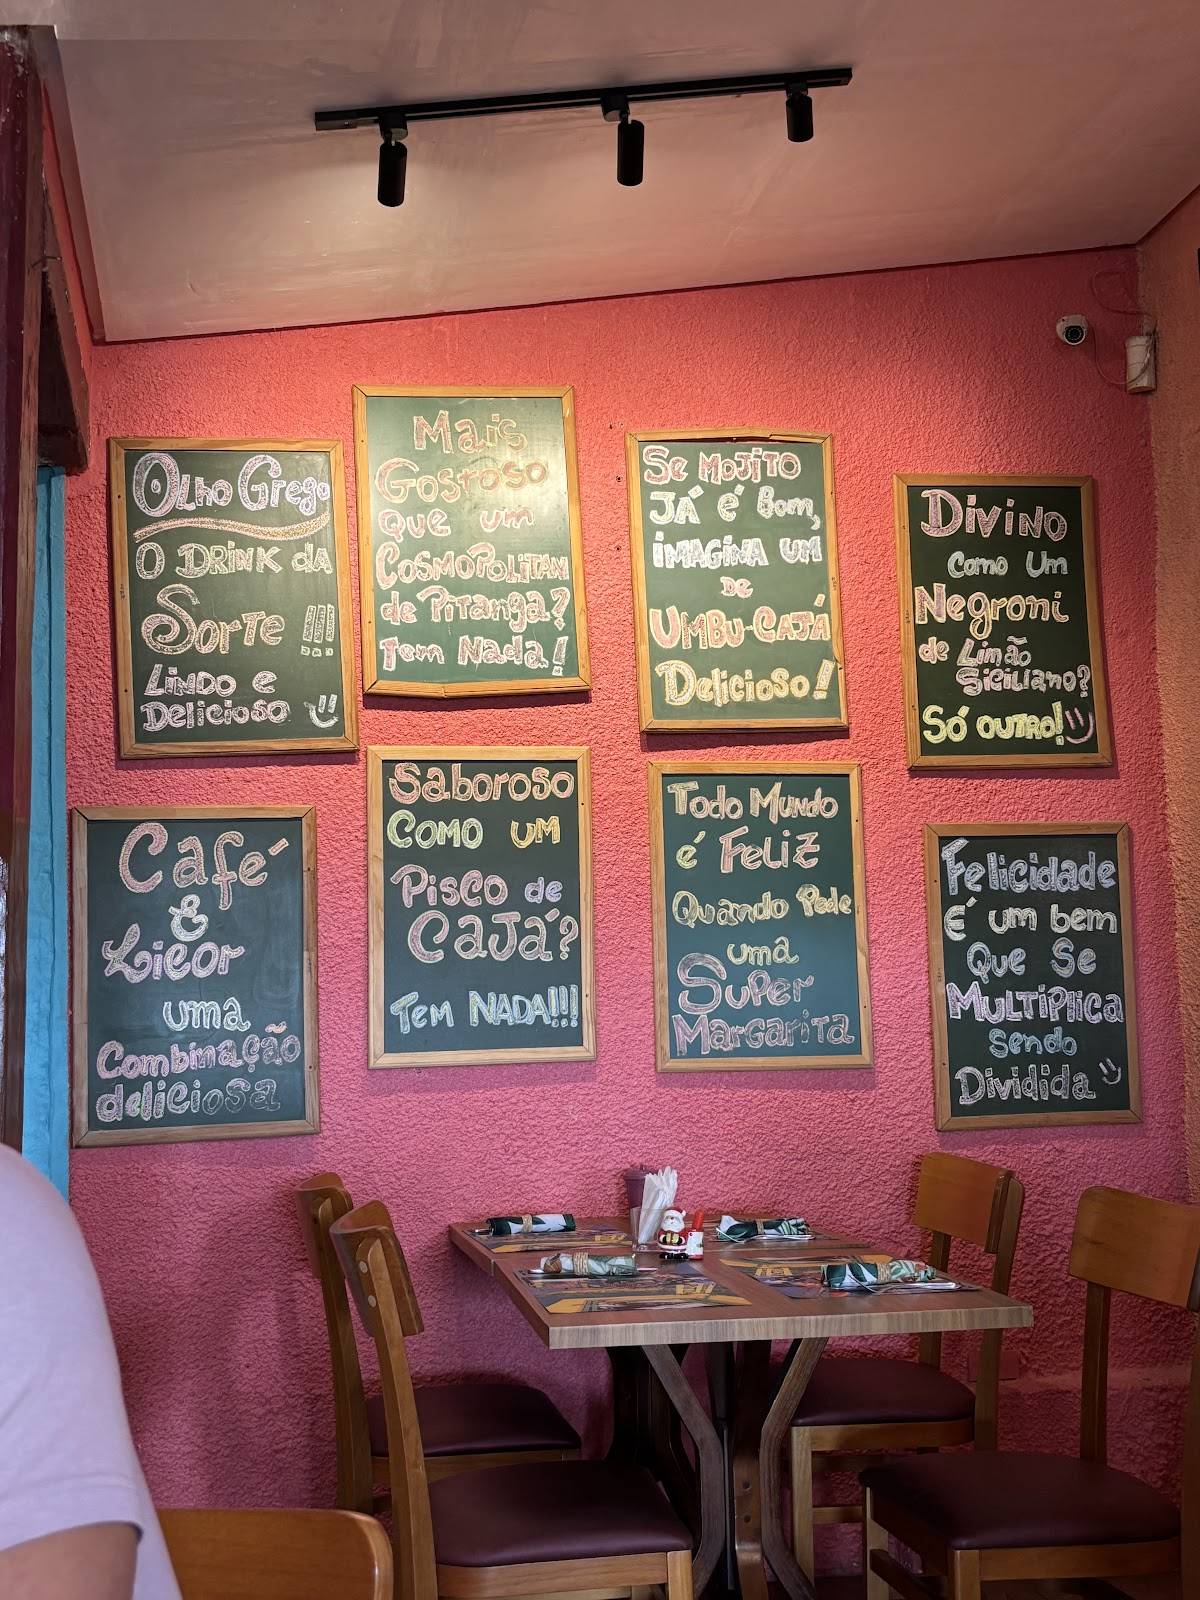 Olho Grego
O Drink da
Sorte !!!
Lindo e
Delicioso
Mais
Gostoso
que um
Cosmopolitan
de Pitanga?
Tem Nada!
Se Mojito
Já é Bom,
imagina um
de
Umbu-Cajá
Delicioso!
Divino
Como Um
Negroni
de Limão
Siciliano?
Só outro!
Café
&
Licor
uma
Combinação
deliciosa
Saboroso
Como um
Pisco de
Cajá?
Tem Nada!!!
Todo Mundo
é Feliz
Quando Pede
uma
Super
Margarita
Felicidade
É um bem
Que Se
Multiplica
Sendo
Dividida